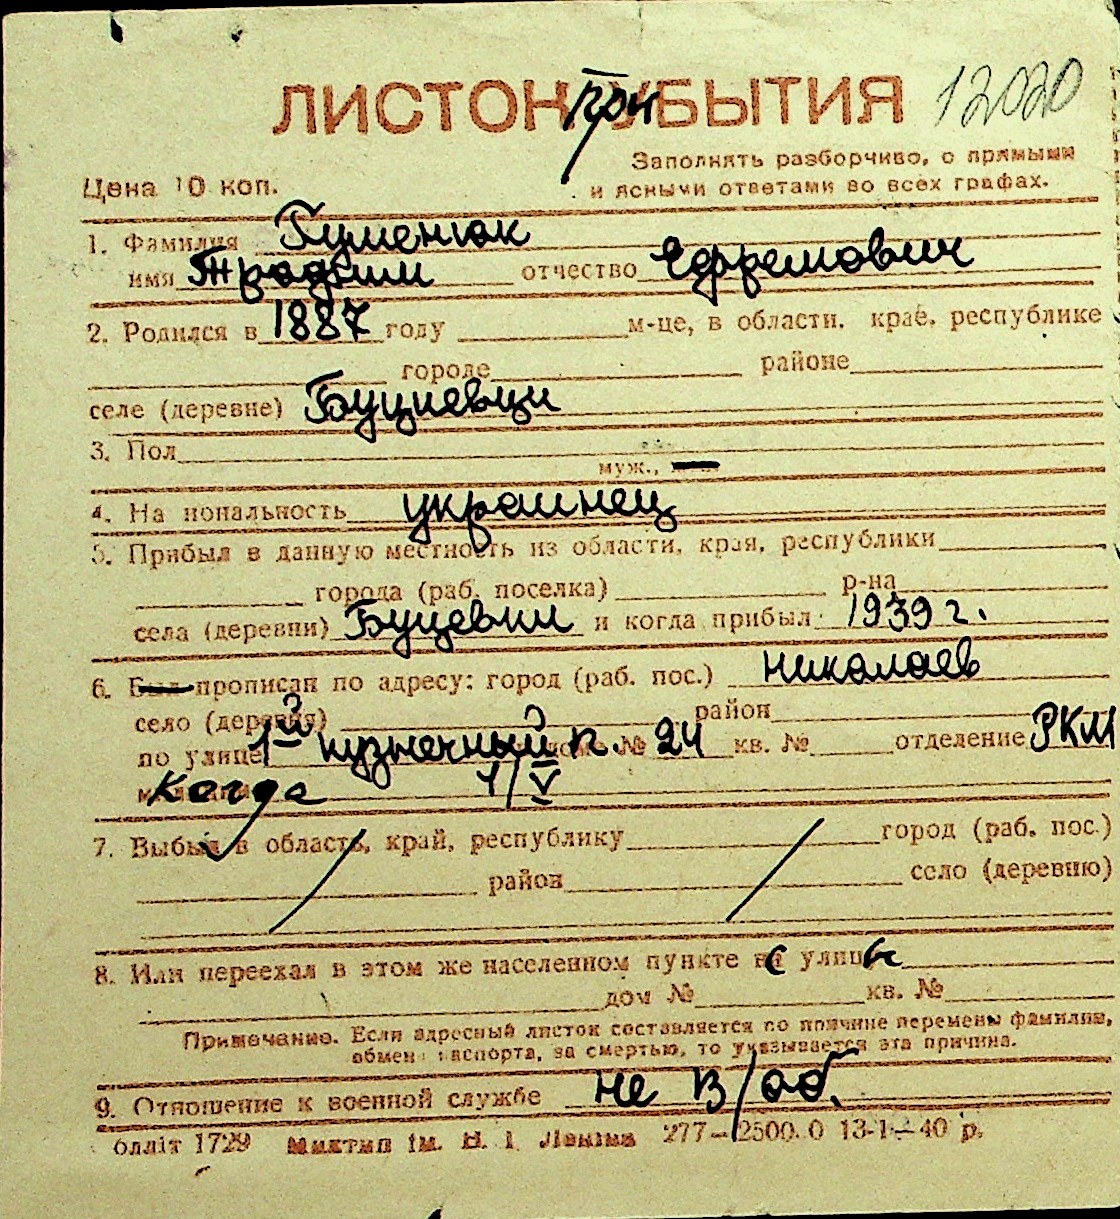 ЛИСТОК при УБЫТИЯ 12020
Заполнять разборчиво, с прямыми
и ясными ответами во всех графах.
Цена 10 коп.
1. Фамилия Гуменюк
имя Трофим отчество Ефремович
2. Родился в 1887 году м-це, в области, крае, республике
городе районе
селе (деревне) Буцневци
3. Пол
муж.,
4. На иональность украинец
5. Прибыл в данную местность из области, края, республики
города (раб. поселка) р-на
села (деревни) Буцевки и когда прибыл 1939 г.
6. Был прописан по адресу: город (раб. пос.) Николаев
село (деревня) район
по улице 1й кузнечный п. дом № 24 кв. № отделение РКМ
когда 1/V
7. Выбыл в область, край, республику город (раб. пос.)
район село (деревню)
8. Или переехал в этом же населенном пункте с улицы
дом № кв. №
Примечание. Если адресный листок составляется по причине перемены фамилии,
обмен паспорта, за смертью, то указывается эта причина.
9. Отношение к военной службе не в/об.
блліт 1729 Миктип ім. В. І. Леніна 277—2500.0 13-1—40 р.